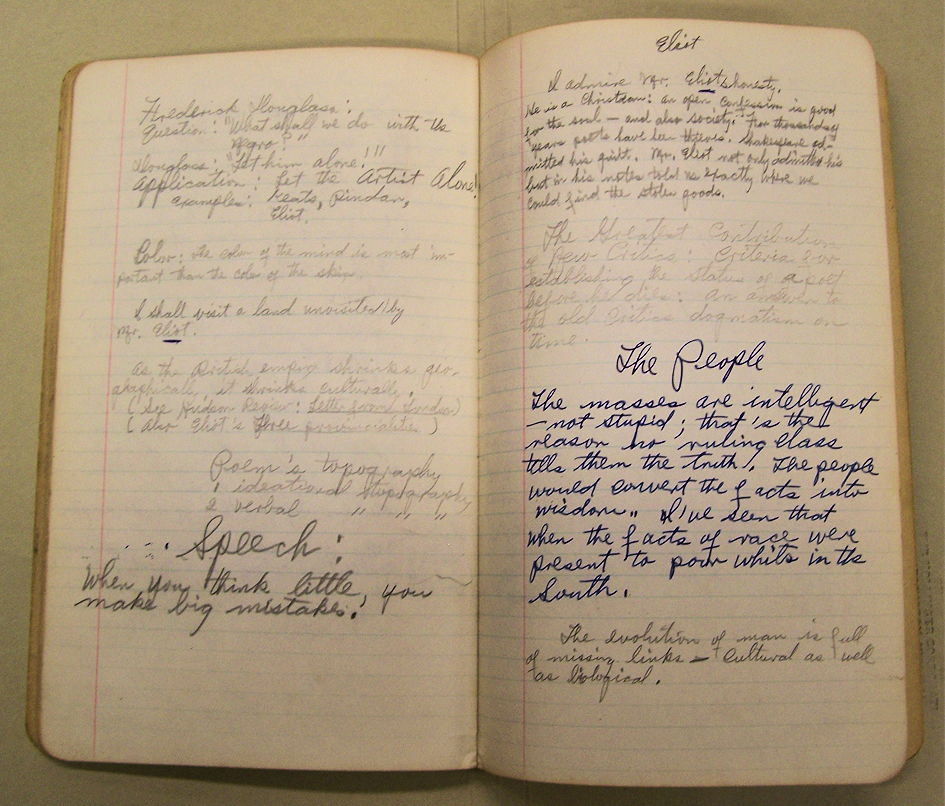 Frederick Douglass:
Question: "What shall we do with the
Negro?"
Douglass: "Let him alone!!!
Application: Let the Artist Alone!
Examples: Keats, Pindar,
Eliot.
Color: The color of the mind is most im-
portant than the color of the skin.
I shall visit a land unvisited by
Mr. Eliot.
As the British empire shrinks geo-
graphically, it shrinks culturally.
(See Hudson Review: Letter from London)
(Also Eliot's three provincialities)
Poem's topography
1 ideational topography
2 verbal " "
Speech:
When you think little, you
make big mistakes.
Eliot
I admire Mr. Eliot's honesty.
He is a Christian: an open confession is good
for the soul — and also society. For thousands of
years poets have been thieves. Shakespeare ad-
mitted his guilt. Mr. Eliot not only admitted his
but in his notes told us exactly where we
could find the stolen goods.
The Greatest Contribution
of New Critics: Criteria for
establishing the status of a poet
before he dies: an answer to
the old critics dogmatism on
time.
The People
The masses are intelligent
— not stupid; that's the
reason no ruling class
tells them the truth. The people
would convert the facts into
wisdom. I've seen that
when the facts of race were
present to poor whites in the
South.
The evolution of man is full
of missing links — cultural as well
as biological.